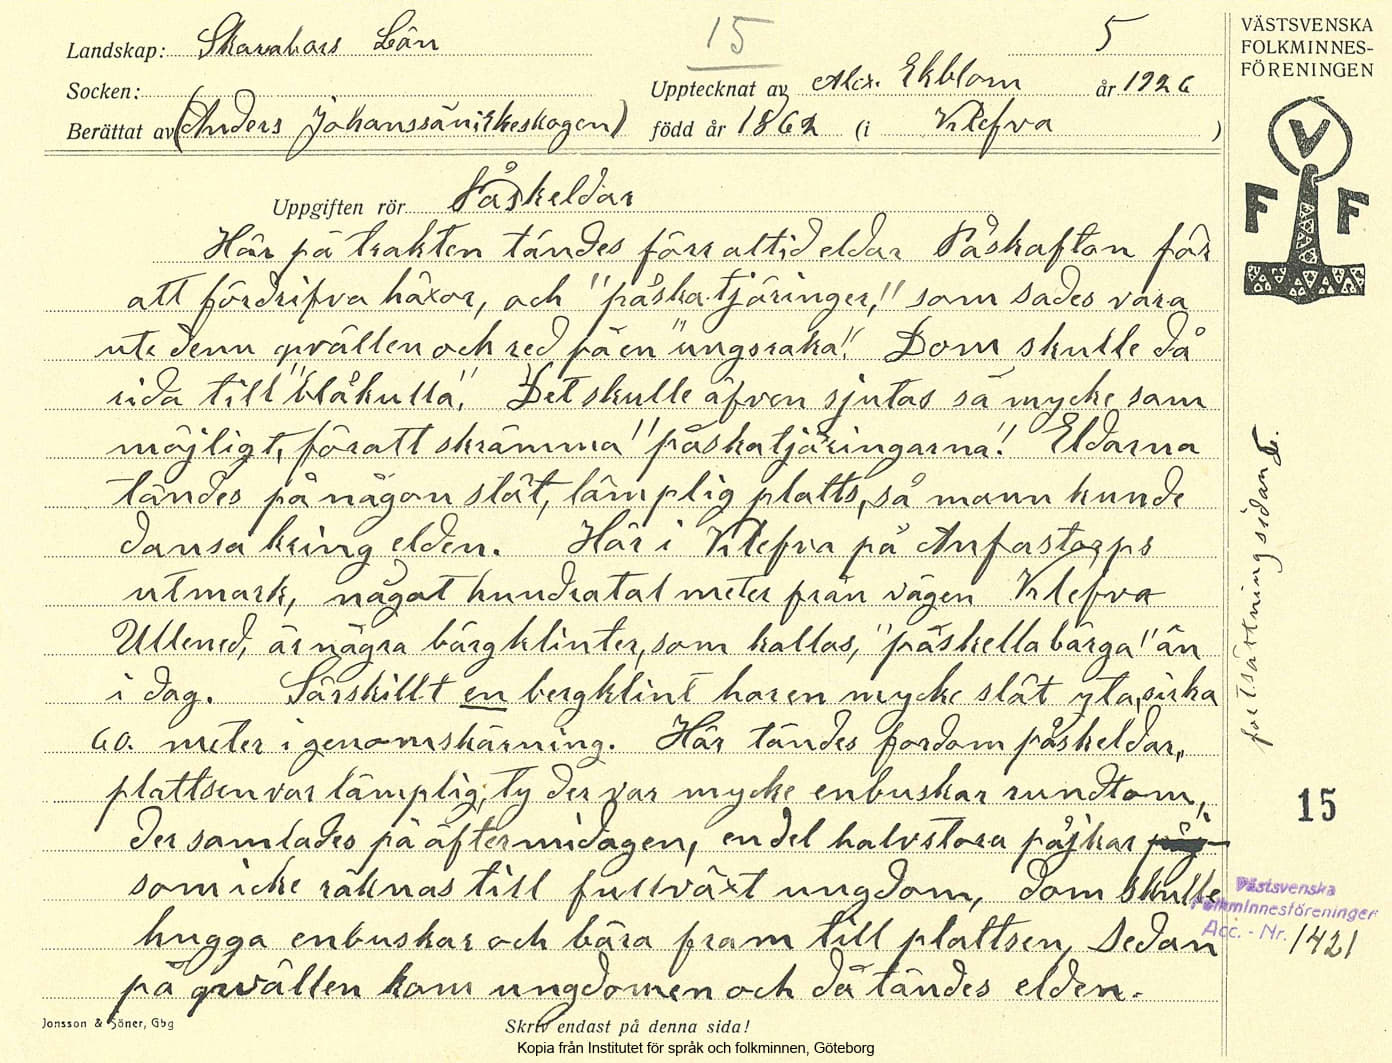 15
5
Landskap: Skarabors Län
Socken:
Upptecknat av Alex. Ekblom år 1926
Berättat av (Anders Johanssäni Ekeskogen) född år 1862 (i Kilefva )
Uppgiften rör Påskeldar
Här på trakten tändes förr altid eldar Påskafton för
att fördrifva häxor, och "påska tjäringer," som sades vara
ute denn qvällen och red på en "ungsraka". Dom skulle då
rida till "blåkulla". Det skulle äfven sjutas så mycke som
möjligt, föratt skrämma "påskatjäringarna". Eldarna
tändes på någon slät, lämplig platts, så mann kunde
dansa kring elden. Här i Kilefva på Anfastorps
utmark, något hundratal meter från vägen Kilefva
Ullened, är några bärgklinter, som kallas, "påskellabärga" än
i dag. Särskillt en bergklint har en mycke slät yta, sirka
60. meter i genomskärning. Här tändes fordom påskeldar,
plattsen var lämplig, ty der var mycke enbuskar rundtom,
der samlades på äftermidagen, en del halvstora påjkar
som icke räknas till fullväxt ungdom, dom skulle
hugga enbuskar och bära fram till plattsen, Sedan
på qvällen kom ungdomen och då tändes elden.
Jonsson & Söner, Gbg
Skriv endast på denna sida!
Kopia från Institutet för språk och folkminnen, Göteborg
VÄSTSVENSKA
FOLKMINNES-
FÖRENINGEN
V
F F
fortsättning sidan 6.
15
Västsvenska
Folkminnesföreningen
Acc. - Nr. 1421